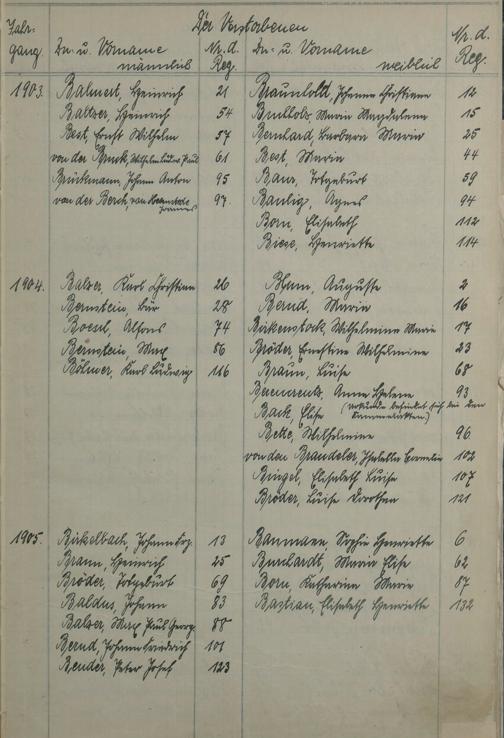 Jahr-
gang.
Der Verstorbenen
Zu- u. Vorname
männlich
Nr. d.
Reg.
Zu- u. Vorname
weiblich
Nr. d.
Reg.
1903. Bahnert, Heinrich 21 Braunhold, Johanna Christiane 12
Baltzer, Heinrich 54 Buchholz, Maria Magdalena 15
Best, Ernst Wilhelm 57 Bernhard, Barbara Maria 25
von der Bruck, Wilhelm Paul 61 Best, Maria 44
Brückmann, Johann Anton 95 Baur, Totgeburt 59
von der Berst, 97 Baulig, Agnes 94
Born, Elisabeth 112
Biese, Henriette 114
1904. Balzer, Karl Christian 26 Blum, Auguste 2
Bernstein, Bär 28 Bernd, Maria 16
Alfons 74 Birkenstock, Wilhelmine Marie 17
Bernstein, Max 86 Bröder Ernstine Wilhelmine 23
Böhmer, Karl Ludwig 116 Braun, Luise 68
Anna Helene 93
Back, Elise (Urkunde befindet sich bei den
Sammelakten.)
Bette, Wilhelmine 96
von den Brandeler, Isabella Cornelia 102
Bingel, Elisabeth Luise 107
Bröder, Luise Dorothea 121
1905. Birkelbach, Johann 13 Baumann, Sophie Henriette 6
Braun, Heinrich 25 Burkhardt, Maria Elise 62
Bröder, Totgeburt 69 Born, Katharina Maria 87
Baldus, Johann 83 Bastian, Elisabeth Henriette 132
Balzer, Max Paul Georg 88
Bernd, Johann Friedrich 101
Bender, Peter Josef 123